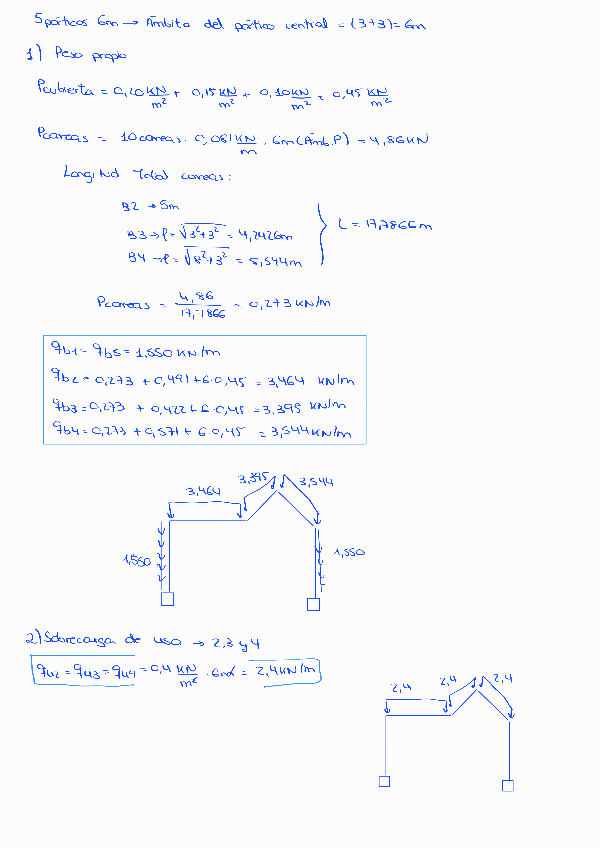 5 pórticos 6m → Ámbito del pórtico central = (3+3)= 6m
1) Peso propio
Pcubierta = 0,20 KN/m² + 0,15 KN/m² + 0,10 KN/m² = 0,45 KN/m²
Pcorreas = 10 correas · 0,081 KN/m · 6m (Ámb.P) = 4,86 KN
Longitud Total correas:
B2 → 5m
B3 → l = √3²+3² = 4,2426m
B4 → l = √8²+3² = 8,544m
L = 17,7866 m
Pcorreas = 4,86/17,7866 = 0,273 KN/m
qb1 = qb5 = 1,550 KN/m
qb2 = 0,273 + 0,491 + 6·0,45 = 3,464 KN/m
qb3 = 0,273 + 0,422 + 6·0,45 = 3,395 KN/m
qb4 = 0,273 + 0,571 + 6·0,45 = 3,544 KN/m
3,464 3,395 3,544
1,550 1,550
2) Sobrecarga de uso → 2,3 y 4
qu2 = qu3 = qu4 = 0,4 KN/m² · 6m = 2,4 KN/m
2,4 2,4 2,4